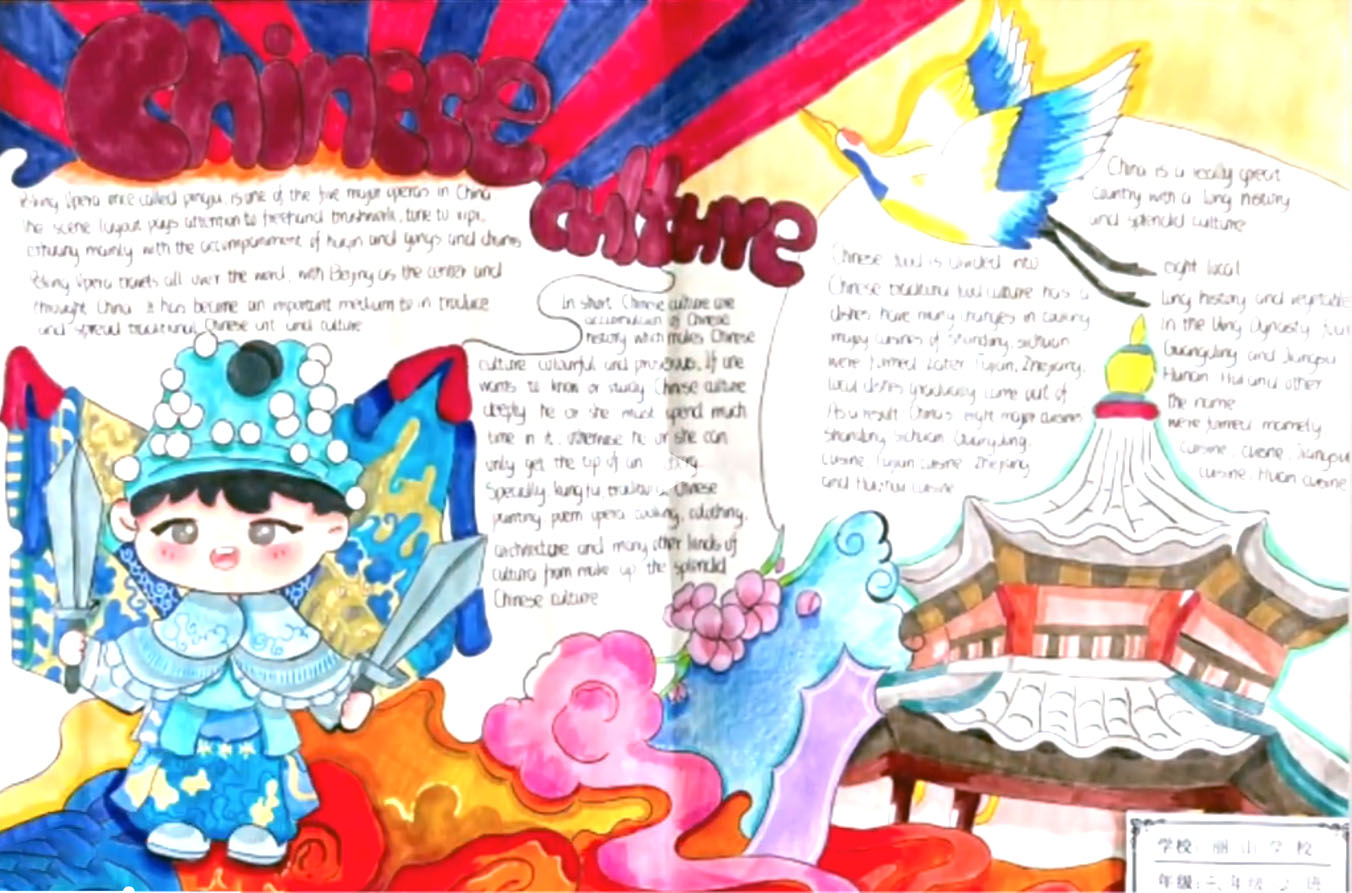 Chinece
culture
Peking Opera once called pingju, is one of the five major operas in China
the scene layout pays attention to freehand brushwork, tune to xipi,
erhuang mainly, with the accompaniment of huqin and gongs and drums
Peking Opera travels all over the world, with Beijing as the center and
throught China it has became an important medium to in troduce
and spread traditional Chinese art and culture
In short Chinese culture are
accomulation of Chinese
history which makes Chinese
culture colourful and If one
wants to know or study Chinese culture
deeply he or she must spend much
time in it, otherwise he or she can
only get the tip of an
Specially, kung fu, Chinese
painting, poem opera cooking, clothing,
architecture and many other kinds of
cultura from make up the splendid
Chinese culture
China is a really great
country with a long history
and splendid culture
Chinese food is divided into
Chinese traditional food culture has a
dishes have many changes in cooking
many cuisines of Shandong, Sichuan
were formed Later Fujian, Zhejiang,
local dishes gradually came out of
As a result China's eight major cuisines
Shandong Sichuan
cuisine, Fujian cuisine Zhejiang
and cuisine
eight local
long history and vegetable
In the Dynasty,
Guangdong and Jiangsu
Hunan and other
the name
were formed namely
cuisine, cuisine, Jiangsu
cuisine, cuisine
学校: 丽山学校
年级: 班